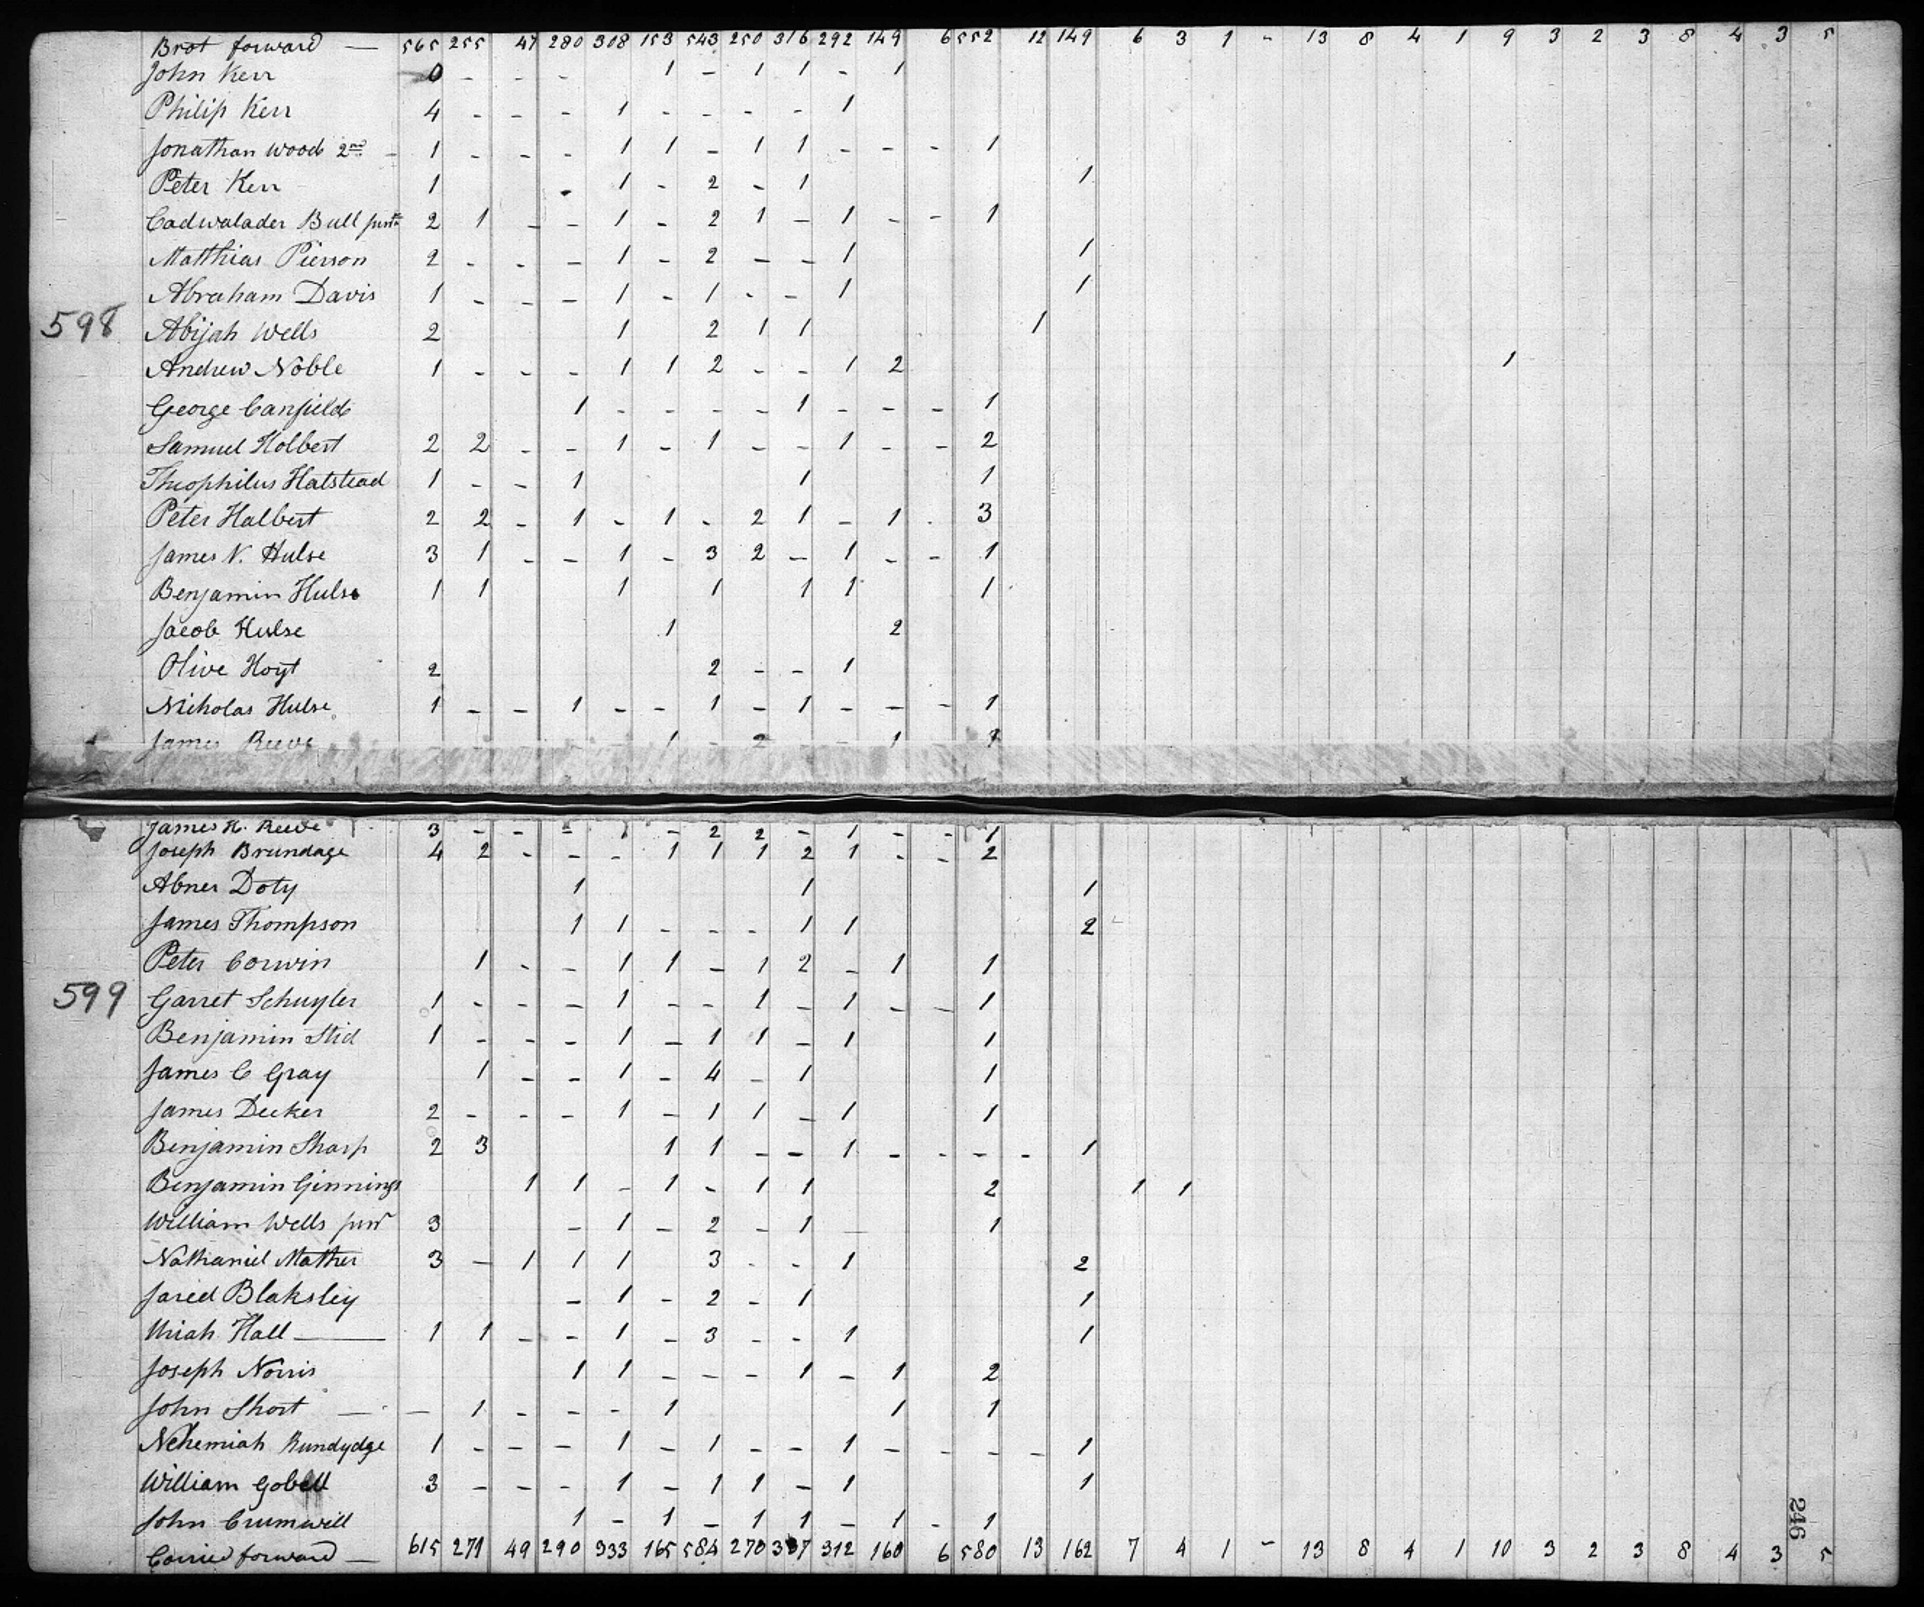 Brot forward — 565 255 47 280 308 153 543 250 316 292 149 6 552 12 149 6 3 1 - 13 8 4 1 9 3 2 3 8 4 3 5
John Kerr 0 - - - 1 - 1 1 - 1
Philip Kerr 4 - - - 1 - - - - 1
Jonathan Wood 2nd - 1 - - - 1 1 - 1 1 - - - 1
Peter Kerr 1 - 1 - 2 - 1 1
Cadwalader Bull junr 2 1 - - 1 - 2 1 - 1 - - 1
Matthias Pierson 2 - - - 1 - 2 - - 1 1
Abraham Davis 1 - - - 1 - 1 - - 1 1
598 Abijah Wells 2 1 2 1 1 1
Andrew Noble 1 - - - 1 1 2 - - 1 2 1
George Canfield 1 - - - - 1 - - - 1
Samuel Holbert 2 2 - - 1 - 1 - - 1 - - 2
Theophilus Halstead 1 - - 1 1 1
Peter Halbert 2 2 - 1 - 1 - 2 1 - 1 - 3
James N. Hulse 3 1 - - 1 - 3 2 - 1 - - 1
Benjamin Hulse 1 1 1 1 1 1 1
Jacob Hulse 1 2
Olive Hoyt 2 2 - - 1
Nicholas Hulse 1 - - 1 - - 1 - 1 - - - 1
James Reeve 1 - 2 - 1 1
James H. Reeve 3 - - - 1 - 2 2 - 1 - - 1
Joseph Brundage 4 2 - - - 1 1 1 2 1 - - 2
Abner Doty 1 1 1
James Thompson 1 1 - - - 1 1 2
Peter Corwin 1 - - 1 1 - 1 2 - 1 1
599 Garret Schuyler 1 - - - 1 - - 1 - 1 - - 1
Benjamin Stid 1 - - - 1 - 1 1 - 1 1
James C Gray 1 - - 1 - 4 - 1 1
James Decker 2 - - - 1 - 1 1 - 1 1
Benjamin Sharp 2 3 1 1 - - 1 - - - - 1
Benjamin Ginnings 1 1 - 1 - 1 1 2 1 1
William Wells junr 3 - 1 - 2 - 1 - 1
Nathaniel Mather 3 - 1 1 1 3 - - 1 2
Jared Blaksley - 1 - 2 - 1 1
Uriah Hall — 1 1 - - 1 - 3 - - 1 1
Joseph Norris 1 1 - - - 1 - 1 2
John Short — - 1 - - - 1 1 1
Nehemiah Rundydge 1 - - - 1 - 1 - - 1 - - - - 1
William Gobell 3 - - - 1 - 1 1 - 1 1
John Crumwill 1 - 1 - 1 1 - 1 - 1
Carried forward — 615 271 49 290 333 165 584 270 337 312 160 6 580 13 162 7 4 1 - 13 8 4 1 10 3 2 3 8 4 3 5
246